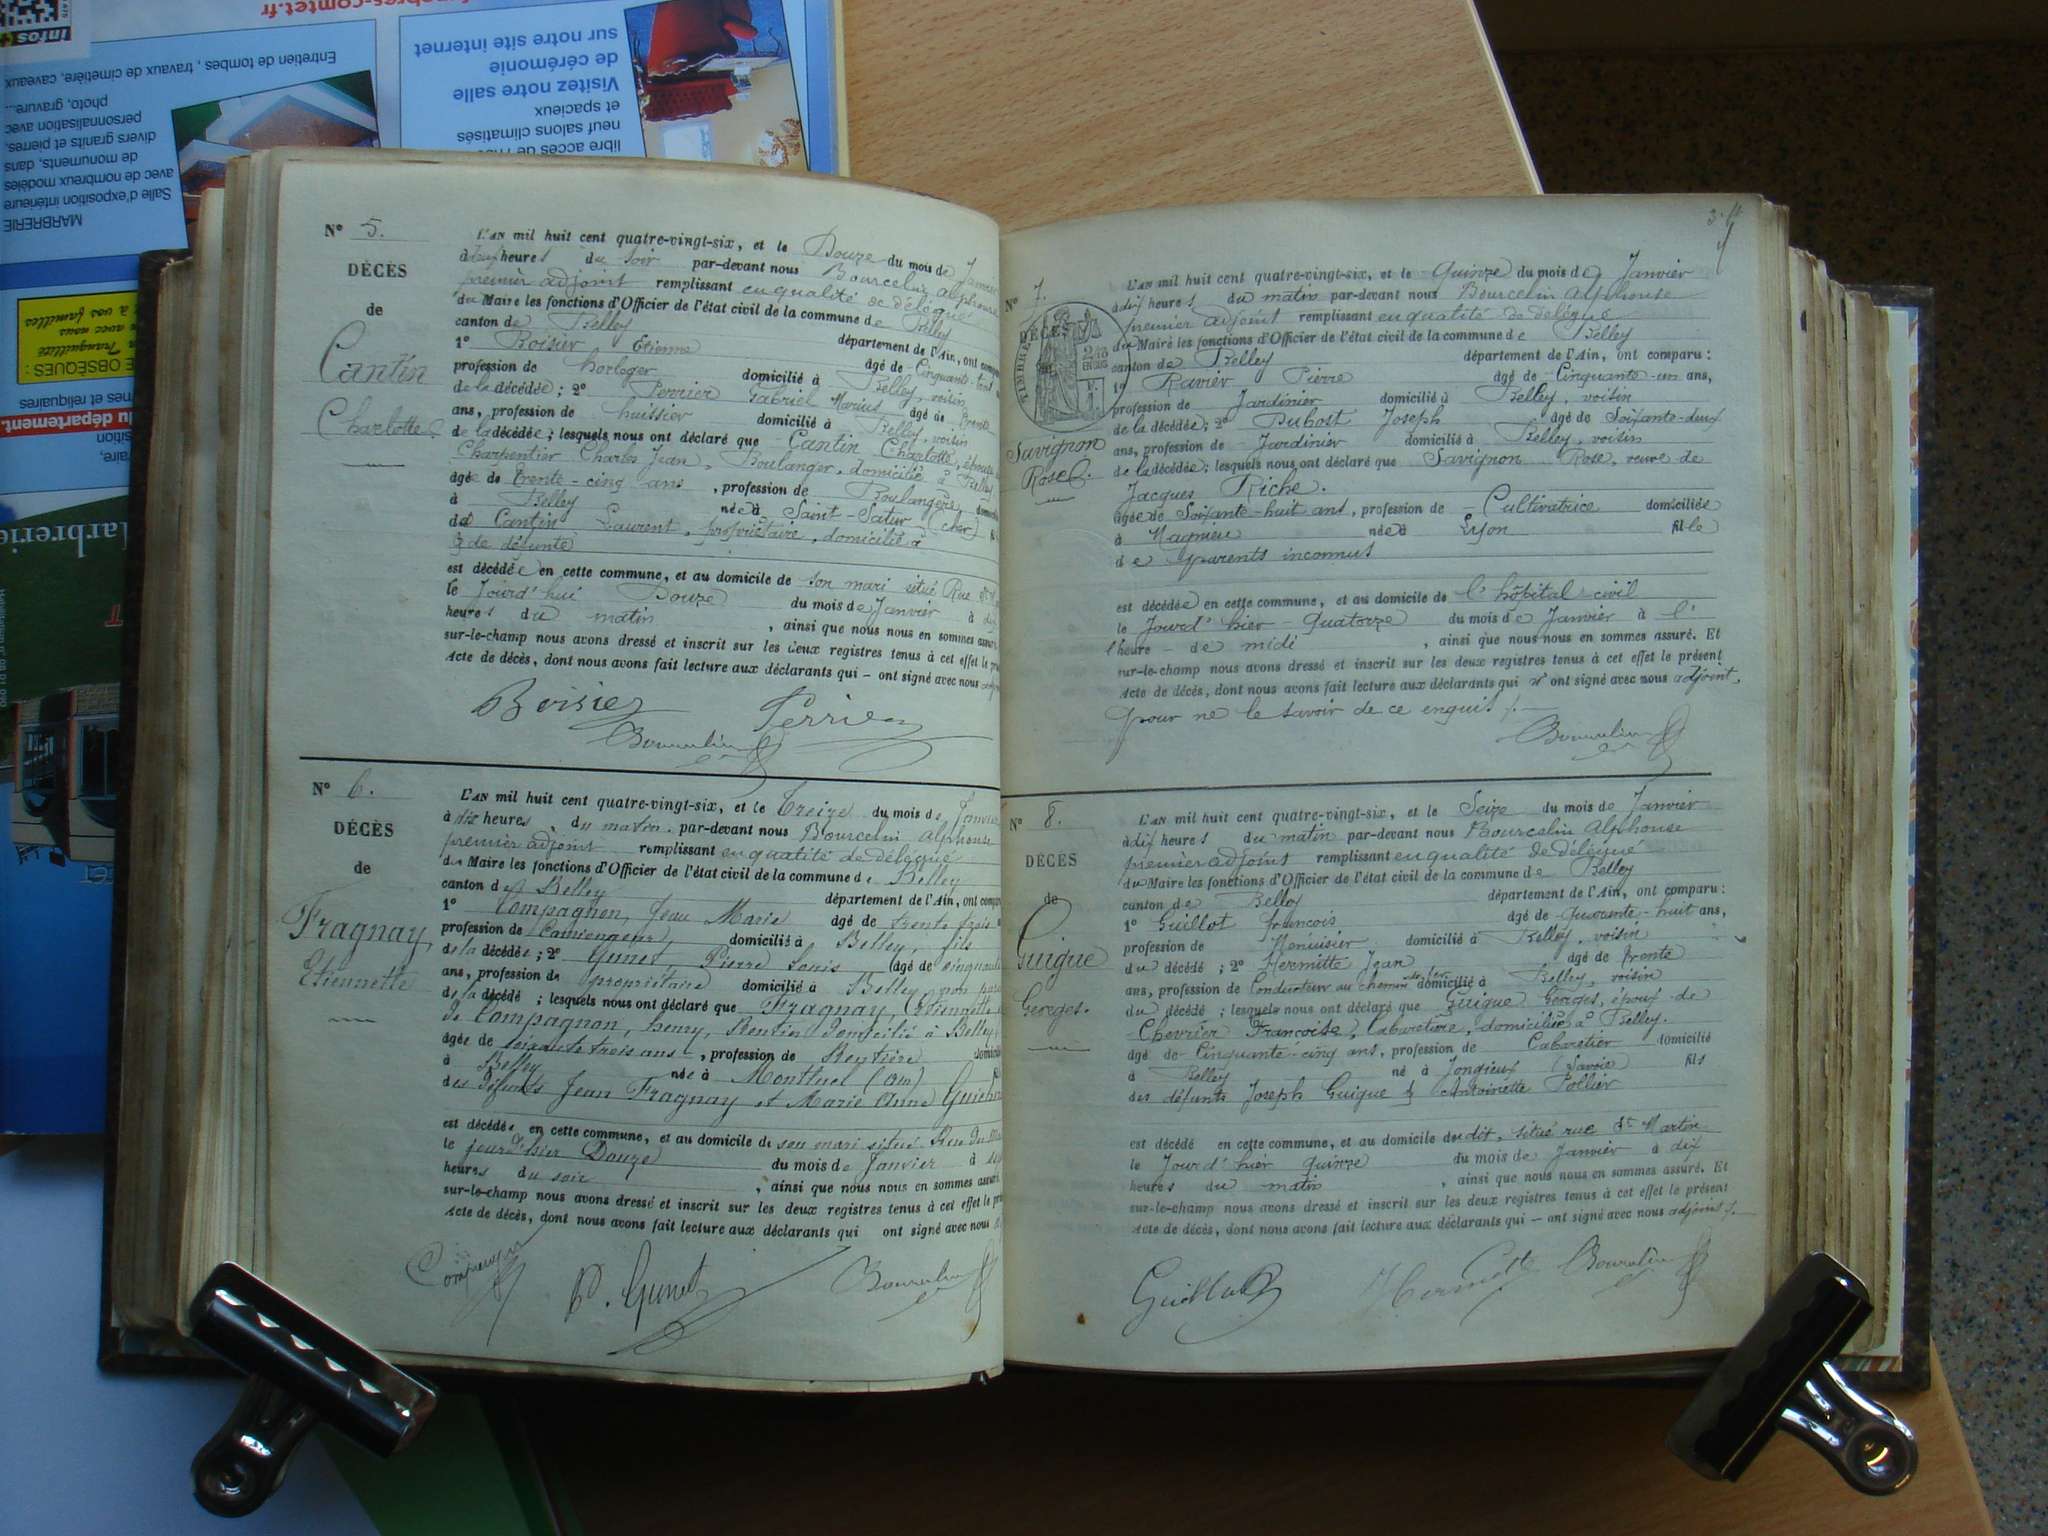 N° 5.
DÉCÈS
de
Cantin
Charlotte
L'AN mil huit cent quatre-vingt-six, et le Douze du mois de Janvier
heures du soir par-devant nous Bourcelin Alphonse
premier adjoint remplissant en qualité de délégué
du Maire les fonctions d'Officier de l'état civil de la commune de Belley
canton de Belley département de l'Ain, ont compa
1° Boisier Etienne âgé de Cinquante
profession de horloger domicilié à Belley, voisin
de la décédée ; 2° Perrier Gabriel Marius âgé de trente
ans, profession de huissier domicilié à Belley, voisin
de la décédée ; lesquels nous ont déclaré que Cantin Charlotte, épouse
Charpentier Charles Jean, Boulanger, domicilié à Belley
âgée de trente-cinq ans, profession de Boulangère domici
à Belley née à Saint-Satur (cher)
de Cantin Laurent, propriétaire, domicilié à
de défunte
est décédée en cette commune, et au domicile de son mari situé Rue
le Jourd'hui Douze du mois de Janvier à
heures du matin, ainsi que nous nous en sommes assuré
sur-le-champ nous avons dressé et inscrit sur les deux registres tenus à cet effet le pr
acte de décès, dont nous avons fait lecture aux déclarants qui — ont signé avec nous
Boisier Perrier
Bourcelin
N° 6.
DÉCÈS
de
Fragnay,
Etiennette
L'AN mil huit cent quatre-vingt-six, et le Treize du mois de Janvier
à dix heures du matin par-devant nous Bourcelin Alphonse
premier adjoint remplissant en qualité de délégué
du Maire les fonctions d'Officier de l'état civil de la commune de Belley
canton de Belley département de l'Ain, ont compa
1° Compagnon, Jean Marie âgé de trente trois
profession de Camionneur, domicilié à Belley, fils
de la décédée ; 2° Gunet, Pierre Louis âgé de cinquante
ans, profession de propriétaire domicilié à Belley, non parent
de la décédé ; lesquels nous ont déclaré que Fragnay, Etiennette
de Compagnon, henry, Rentier domicilié à Belley,
âgée de soixante trois ans, profession de Rentière domicili
à Belley née à Montluel (Ain)
des défunts Jean Fragnay et Marie Anne
est décédée en cette commune, et au domicile de son mari situé Rue du
le jourd'hier Douze du mois de Janvier à
heures du soir, ainsi que nous nous en sommes assuré
sur-le-champ nous avons dressé et inscrit sur les deux registres tenus à cet effet le pr
acte de décès, dont nous avons fait lecture aux déclarants qui ont signé avec nous
Compagnon P. Gunet Bourcelin
N° 7.
DÉCÈS
Savignon
Rose
L'AN mil huit cent quatre-vingt-six, et le Quinze du mois de Janvier
à dix heures du matin par-devant nous Bourcelin Alphonse
premier adjoint remplissant en qualité de délégué
du Maire les fonctions d'Officier de l'état civil de la commune de Belley
canton de Belley département de l'Ain, ont comparu :
1° Ravier Pierre âgé de Cinquante-un ans,
profession de Jardinier domicilié à Belley, voisin
de la décédée ; 2° Dubost Joseph âgé de Soixante-deux
ans, profession de Jardinier domicilié à Belley, voisin
de la décédée ; lesquels nous ont déclaré que Savignon Rose, veuve de
Jacques Riche.
âgée de Soixante-huit ans, profession de Cultivatrice domiciliée
à Magnieu née à Lyon fille
de parents inconnus
est décédée en cette commune, et au domicile de l'hôpital civil
le Jourd'hier Quatorze du mois de Janvier à l'
heure de midi, ainsi que nous nous en sommes assuré. Et
sur-le-champ nous avons dressé et inscrit sur les deux registres tenus à cet effet le présent
acte de décès, dont nous avons fait lecture aux déclarants qui n'ont signé avec nous adjoint,
pour ne le savoir de ce enquis
Bourcelin
N° 8.
DÉCÈS
de
Guigue
Georges.
L'AN mil huit cent quatre-vingt-six, et le Seize du mois de Janvier
à dix heures du matin par-devant nous Bourcelin Alphonse
premier adjoint remplissant en qualité de délégué
du Maire les fonctions d'Officier de l'état civil de la commune de Belley
canton de Belley département de l'Ain, ont comparu :
1° Guillot françois âgé de Quarante-huit ans,
profession de Menuisier domicilié à Belley, voisin
du décédé ; 2° Hermitte Jean âgé de trente
ans, profession de Conducteur au chemin de fer domicilié à Belley, voisin
du décédé ; lesquels nous ont déclaré que Guigue Georges, époux de
Chevrier Françoise, Cabaretière, domiciliée à Belley.
âgé de Cinquante-cinq ans, profession de Cabaretier domicilié
à Belley né à Jongieux (Savoie) fils
des défunts Joseph Guigue & Antoinette Pollier
est décédé en cette commune, et au domicile du dit, situé rue St Martin
le Jourd'hier Quinze du mois de Janvier à dix
heures du matin, ainsi que nous nous en sommes assuré. Et
sur-le-champ nous avons dressé et inscrit sur les deux registres tenus à cet effet le présent
acte de décès, dont nous avons fait lecture aux déclarants qui — ont signé avec nous adjoint
Guillot Hermitte Bourcelin
comtet.fr
infos
Entretien de tombes, travaux de cimetière, caveaux
photo, gravure...
personnalisation avec
divers granits et pierres,
de monuments, dans
avec de nombreux modèles
Salle d'exposition intérieure
MARBRERIE
sur notre site internet
de cérémonie
Visitez notre salle
et spacieux
neuf salons climatisés
libre accès
à vos familles
avec nous
Tranquillité
OBSÈQUES :
du département.